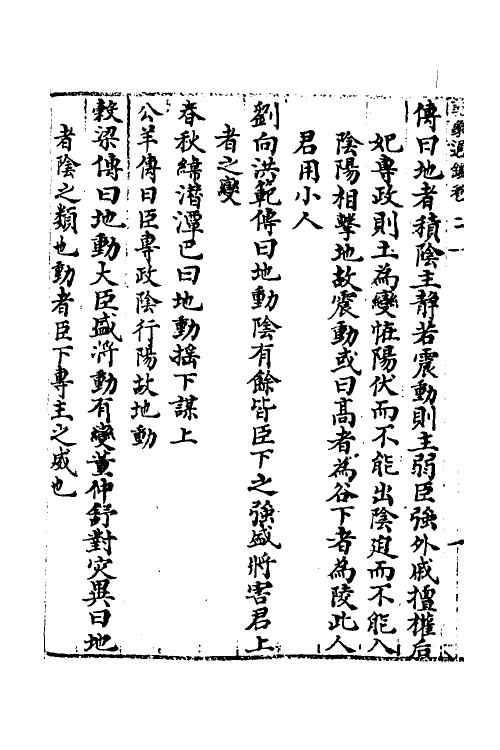 象通鑑卷二 一
傳曰地者積陰主靜若震動則主弱臣強外戚擅權后
妃專政則土為變恠陽伏而不能出陰迫而不能入
陰陽相擊地故震動或曰高者為谷下者為陵此人
君用小人
劉向洪範傳曰地動陰有餘皆臣下之強盛將害君上
者之變
春秋緯潛潭巴曰地動揺下謀上
公羊傳曰臣專政陰行陽故地動
穀梁傳曰地動大臣盛將動有變董仲舒對灾異曰地
者陰之類也動者臣下專主之威也